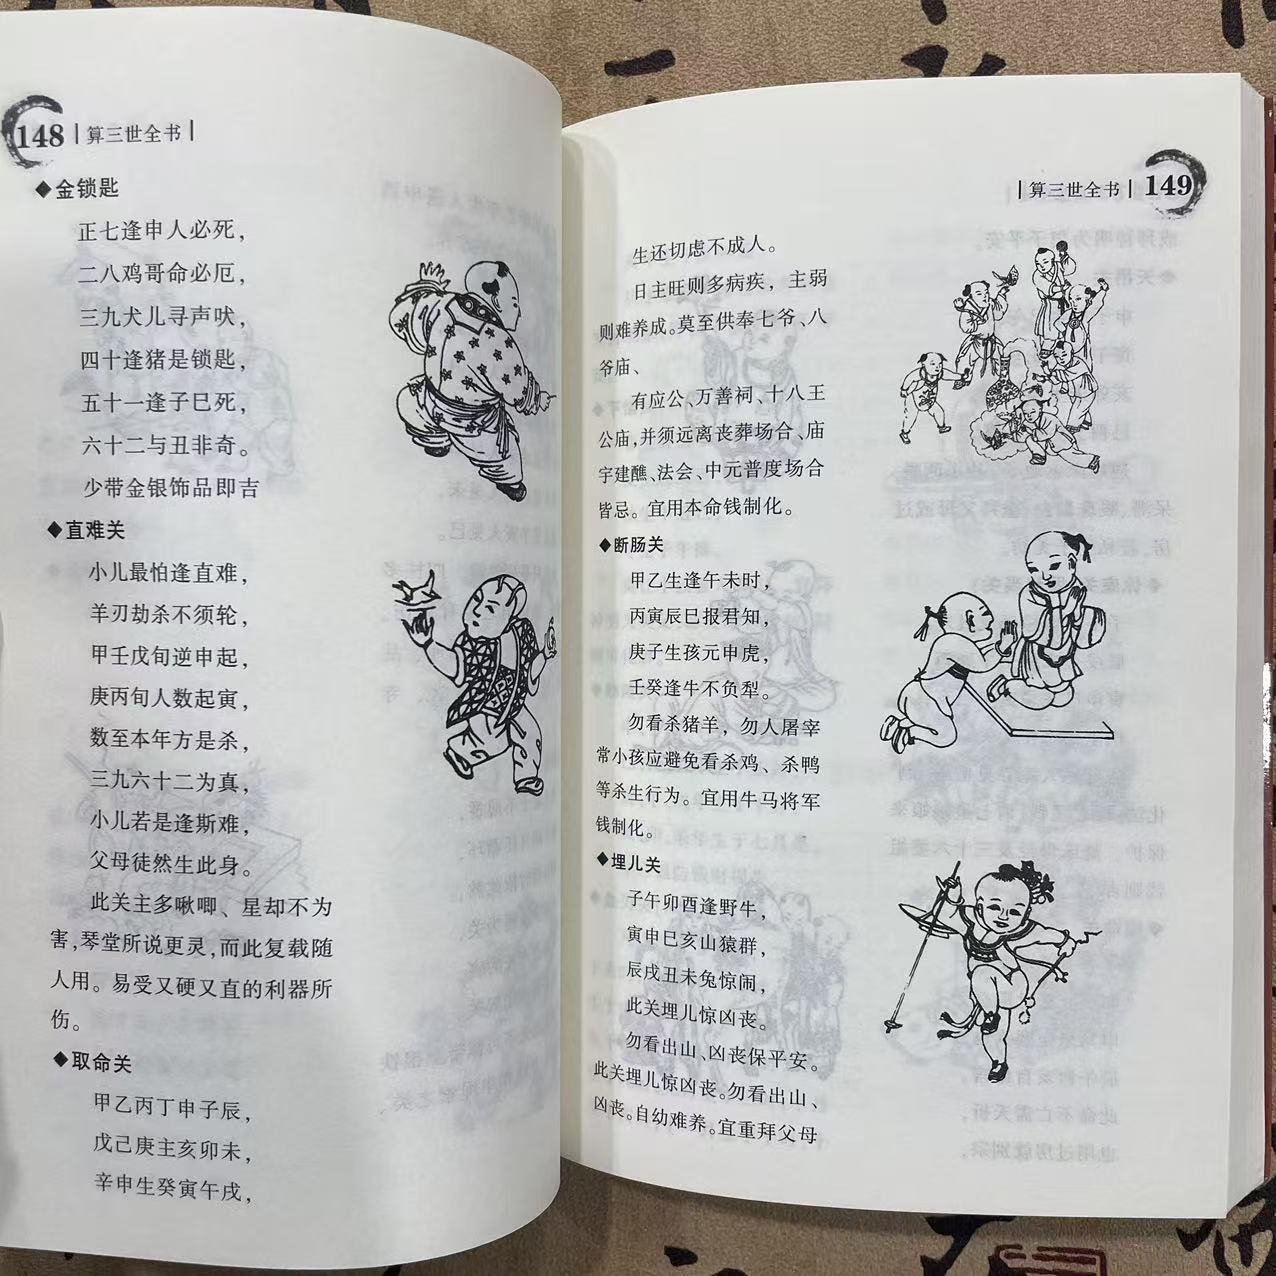 148 | 算三世全书 |
◆金锁匙
正七逢申人必死，
二八鸡哥命必厄，
三九犬儿寻声吠，
四十逢猪是锁匙，
五十一逢子巳死，
六十二与丑非奇。
少带金银饰品即吉
◆直难关
小儿最怕逢直难，
羊刃劫杀不须轮，
甲壬戊旬逆申起，
庚丙旬人数起寅，
数至本年方是杀，
三九六十二为真，
小儿若是逢斯难，
父母徒然生此身。
此关主多啾唧、星却不为
害，琴堂所说更灵，而此复载随
人用。易受又硬又直的利器所
伤。
◆取命关
甲乙丙丁申子辰，
戊己庚主亥卯未，
辛申生癸寅午戌，
| 算三世全书 | 149
生还切虑不成人。
日主旺则多病疾，主弱
则难养成。莫至供奉七爷、八
爷庙、
有应公、万善祠、十八王
公庙，并须远离丧葬场合、庙
宇建醮、法会、中元普度场合
皆忌。宜用本命钱制化。
◆断肠关
甲乙生逢午未时，
丙寅辰巳报君知，
庚子生孩元申虎，
壬癸逢牛不负犁。
勿看杀猪羊，勿人屠宰
常小孩应避免看杀鸡、杀鸭
等杀生行为。宜用牛马将军
钱制化。
◆埋儿关
子午卯酉逢野牛，
寅申巳亥山猿群，
辰戌丑未兔惊闹，
此关埋儿惊凶丧。
勿看出山、凶丧保平安。
此关埋儿惊凶丧。勿看出山、
凶丧。自幼难养。宜重拜父母